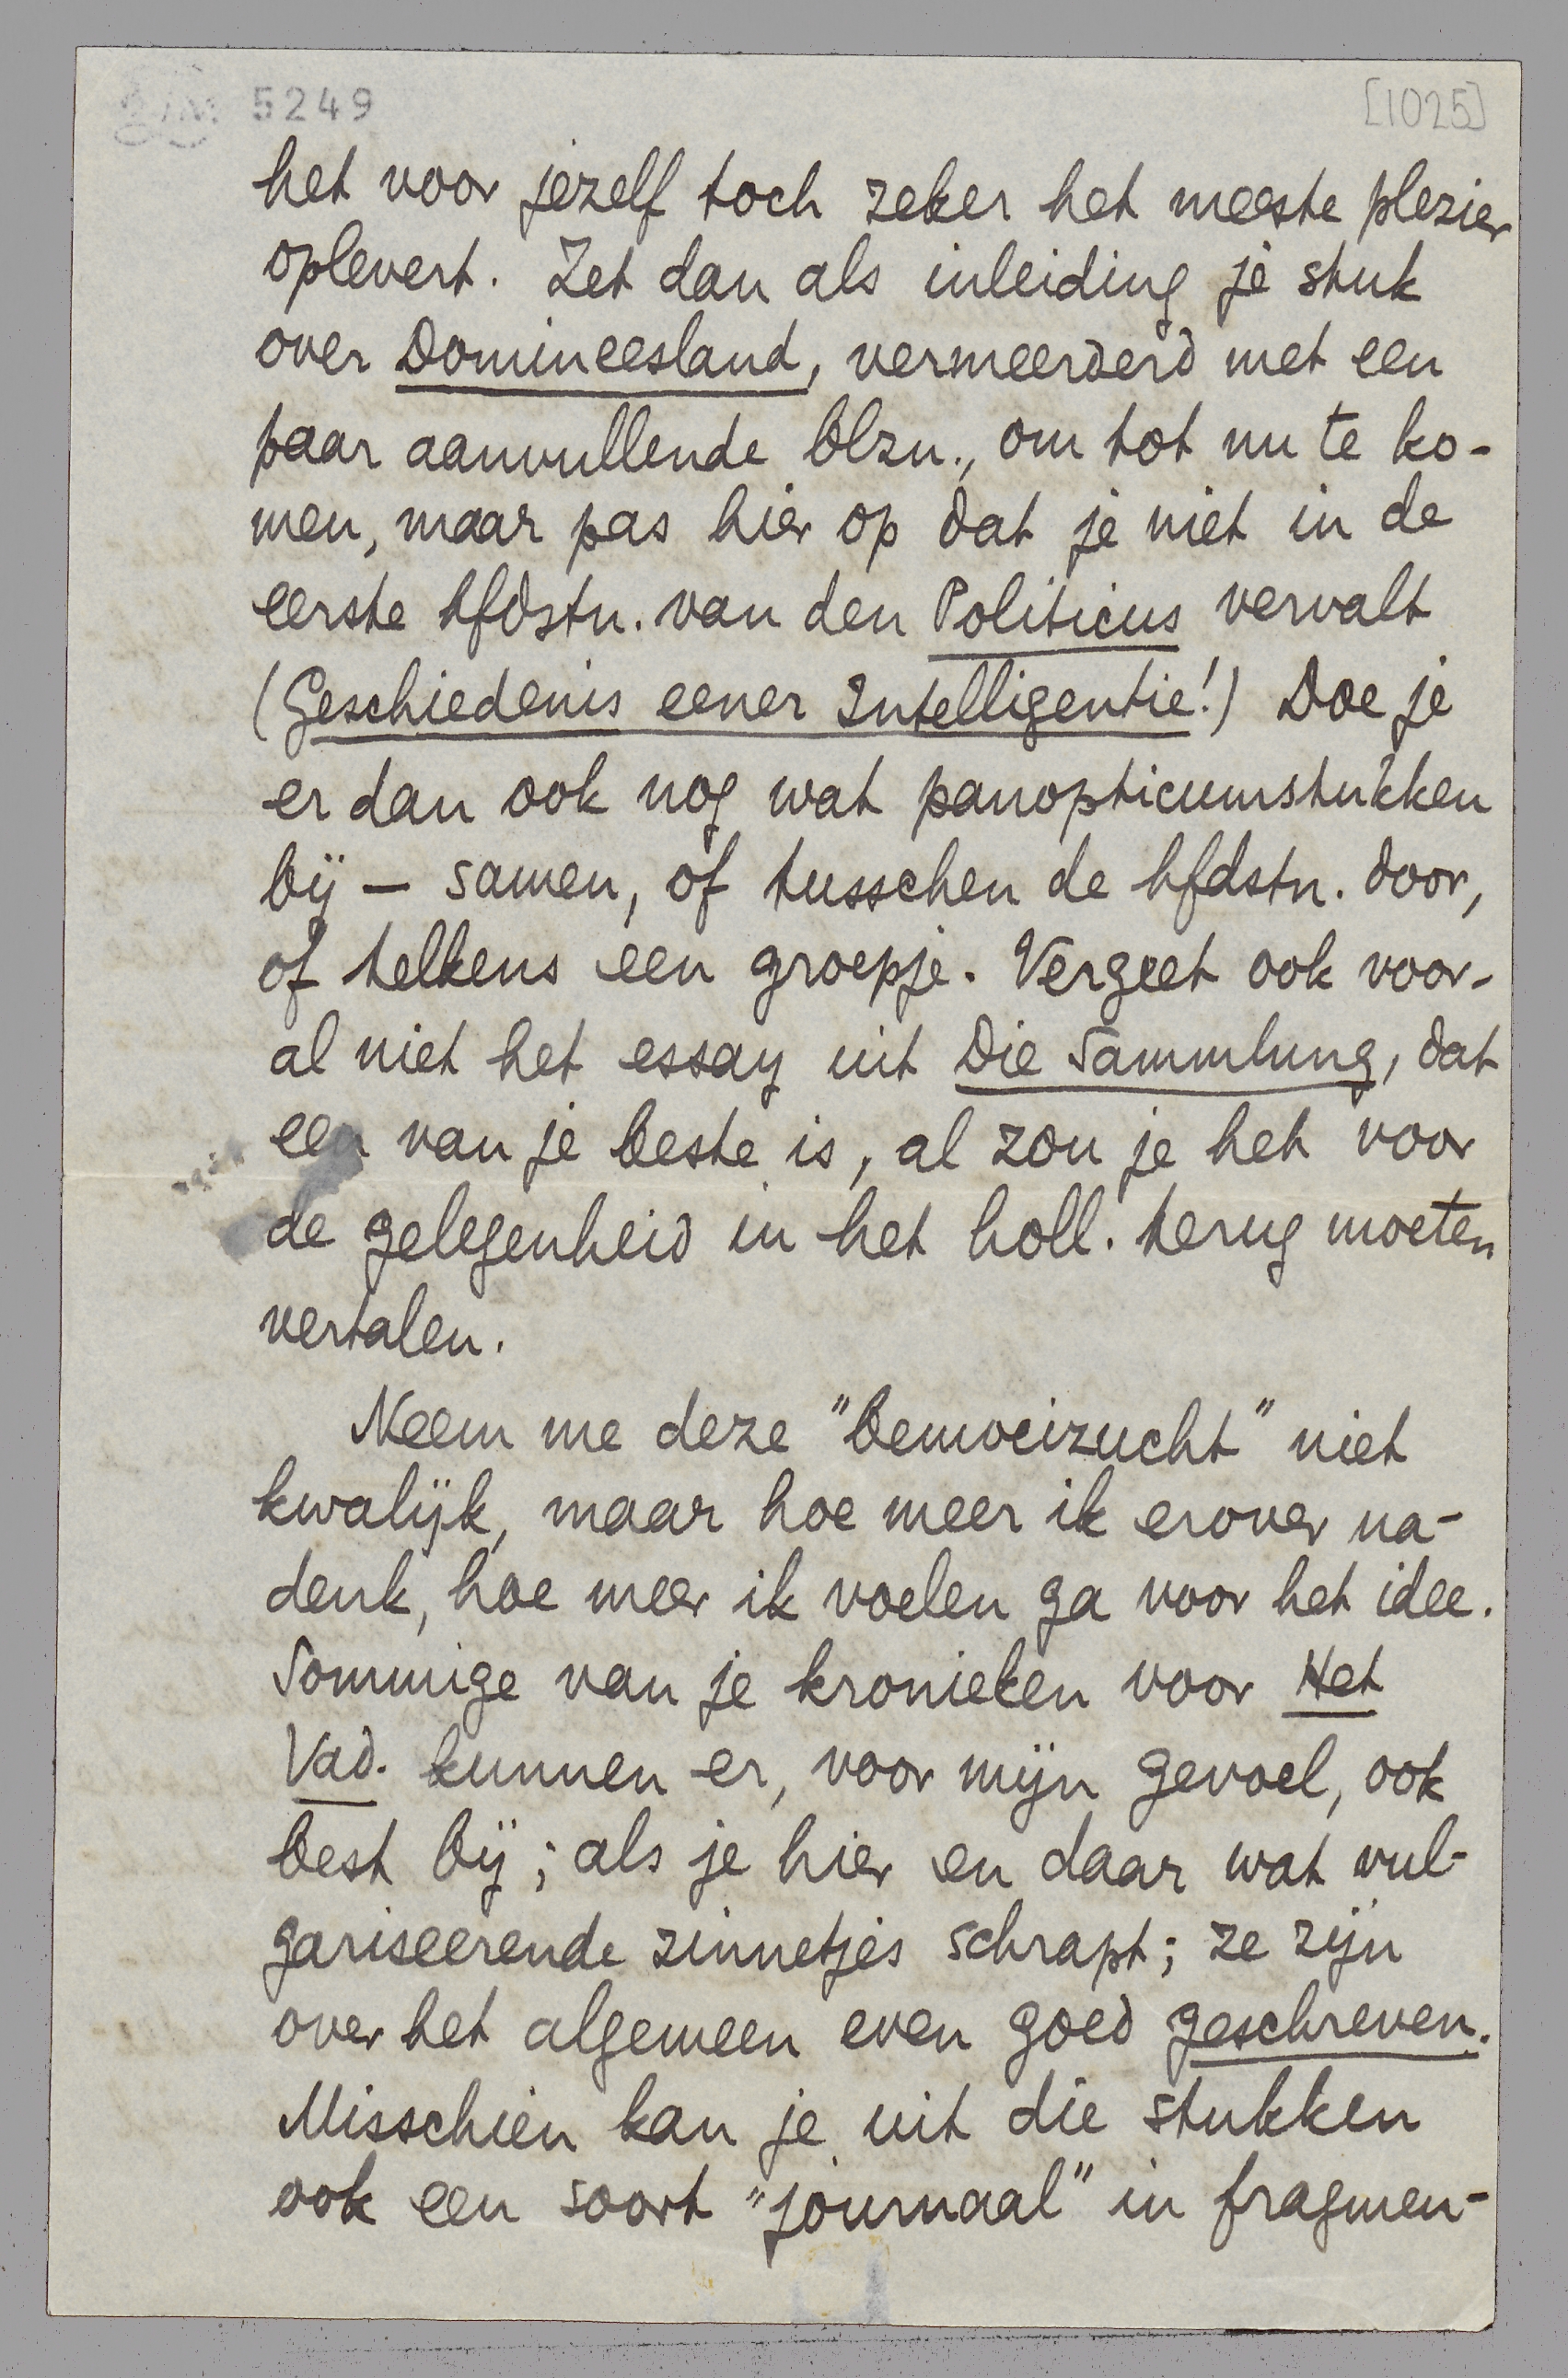 5249
[1025]
het voor jezelf toch zeker het meeste plezier
oplevert. Zet dan als inleiding je stuk
over Domineesland, vermeerderd met een
paar aanvullende blzn., om tot nu te ko-
men, maar pas hier op dat je niet in de
eerste hfdstn. van den Politicus vervalt
(Geschiedenis eener Intelligentie!) Doe je
er dan ook nog wat panopticumstukken
bij — samen, of tusschen de hfdstn. door,
of telkens een groepje. Vergeet ook voor-
al niet het essay uit Die Sammlung, dat
een van je beste is, al zou je het voor
de gelegenheid in het holl. terug moeten
vertalen.
Neem me deze "bemoeizucht" niet
kwalijk, maar hoe meer ik erover na-
denk, hoe meer ik voelen ga voor het idee.
Sommige van je kronieken voor Het
Vad. kunnen er, voor mijn gevoel, ook
best bij; als je hier en daar wat vul-
gariseerende zinnetjes schrapt; ze zijn
over het algemeen even goed geschreven.
Misschien kan je uit die stukken
ook een soort "journaal" in fragmen-